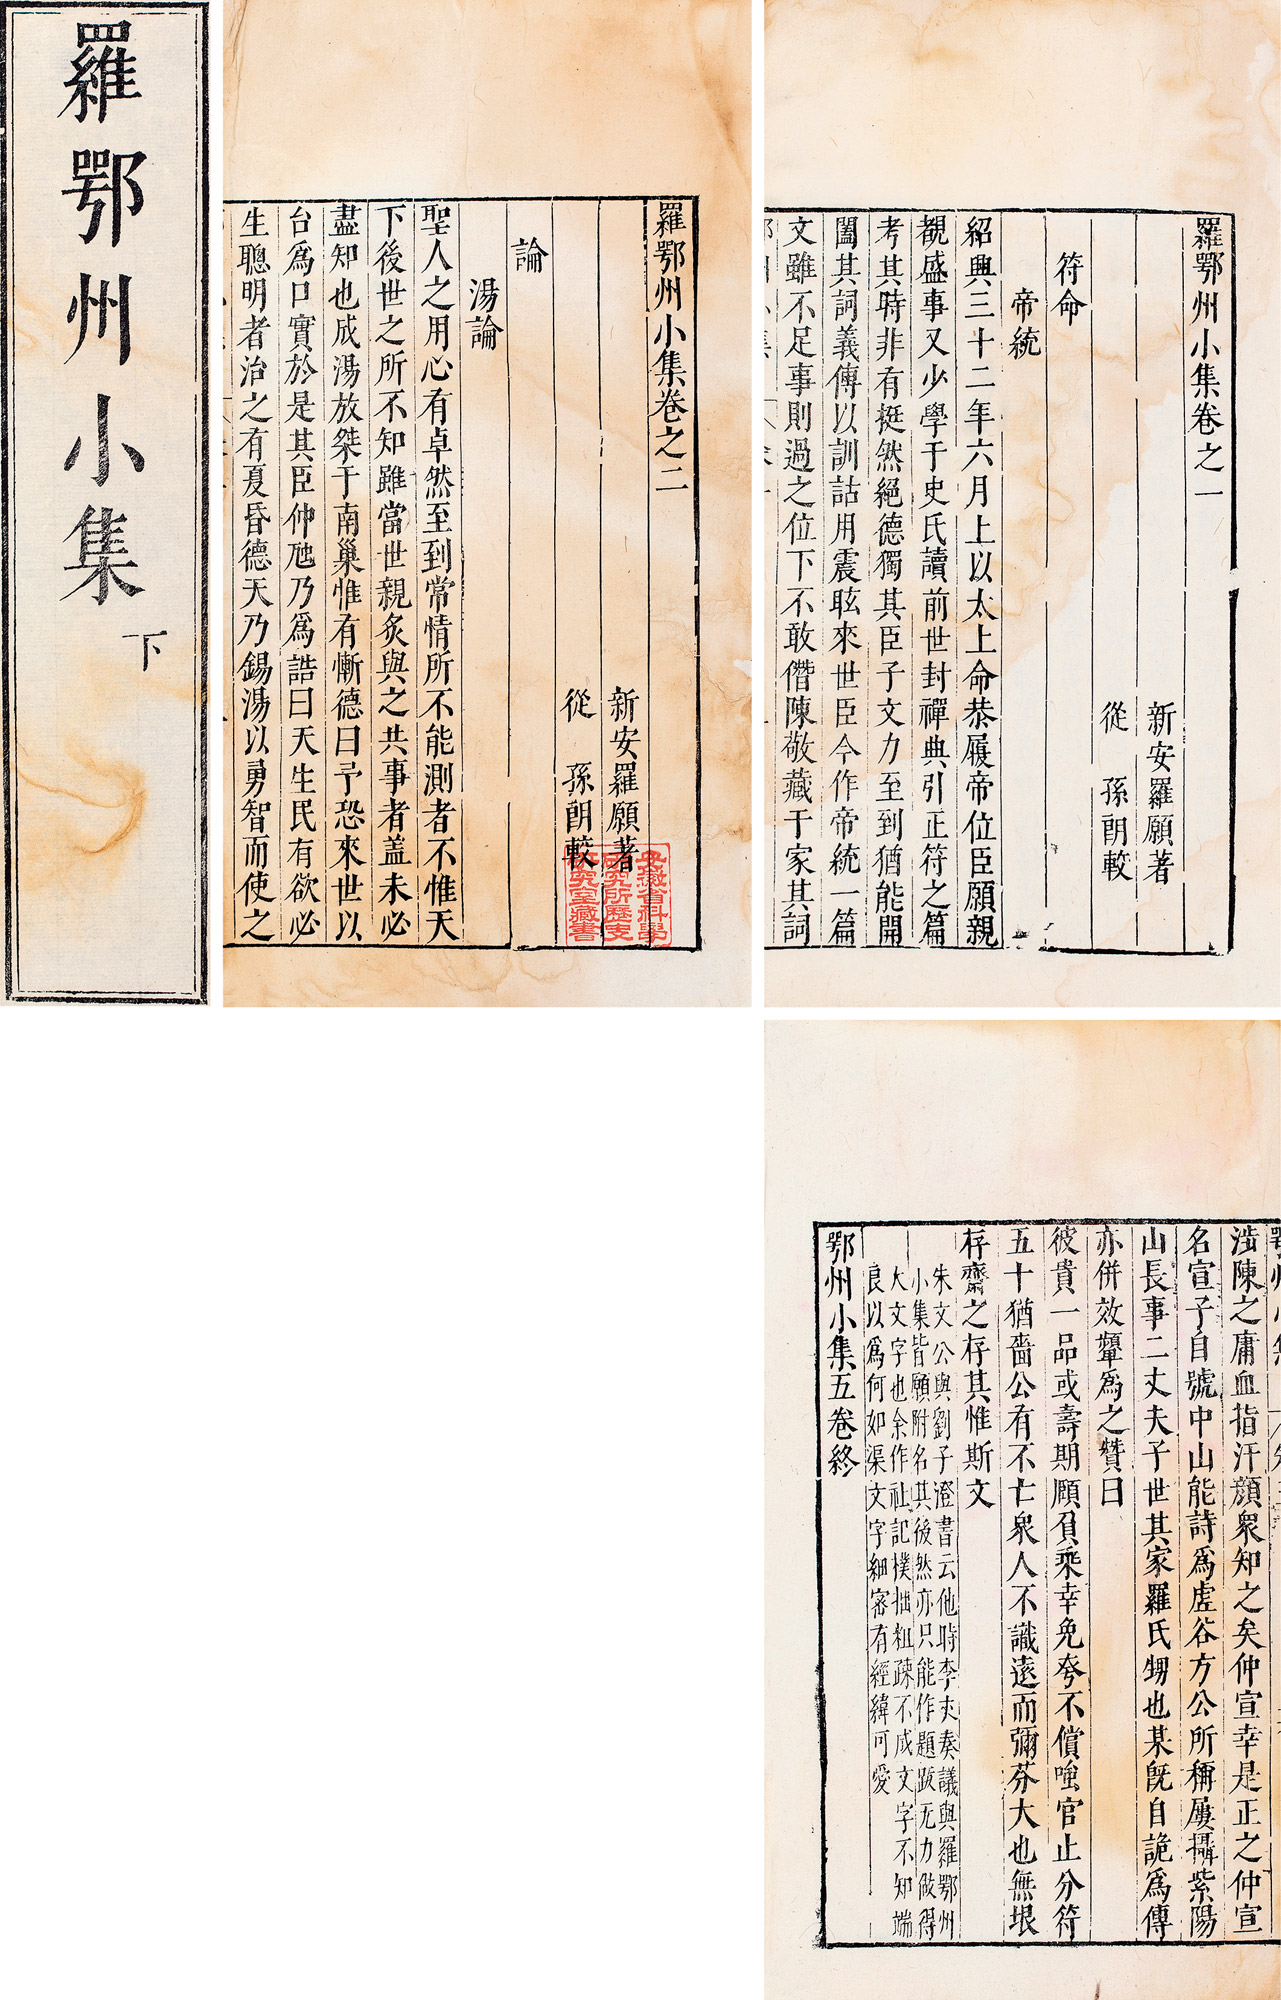 羅鄂州小集
下
羅鄂州小集卷之一
新安羅願著
從 孫朗較
符命
帝統
紹興三十二年六月上以太上命恭履帝位臣願親
覩盛事又少學于史氏讀前世封禪典引正符之篇
考其時非有挺然絕德獨其臣子文力至到猶能開
闔其詞義傳以訓詁用震眩來世臣今作帝統一篇
文雖不足事則過之位下不敢僭陳敬藏于家其詞
羅鄂州小集卷之二
新安羅願著
從 孫朗較
安徽省科學
研究所歷史
研究室藏書
論
湯論
聖人之用心有卓然至到常情所不能測者不惟天
下後世之所不知雖當世親炙與之共事者蓋未必
盡知也成湯放桀于南巢惟有慚德曰予恐來世以
台爲口實於是其臣仲虺乃爲誥曰天生民有欲必
生聰明者治之有夏昏德天乃錫湯以勇智而使之
涉陳之庸血指汗顏衆知之矣仲宣幸是正之仲宣
名宣子自號中山能詩爲虛谷方公所稱屢攝紫陽
山長事二丈夫子世其家羅氏甥也某旣自詭爲傳
亦併效顰爲之贊曰
彼貴一品或壽期願負乘幸免夸不償嗤官止分符
五十猶嗇公有不亡衆人不識遠而彌芬大也無垠
存齋之存其惟斯文
朱文公與劉子澄書云他時李夫奏議與羅鄂州
小集皆願附名其後然亦只能作題跋无力做得
大文字也余作社記樸拙粗疎不成文字不知端
良以爲何如渠文字細密有經緯可愛
鄂州小集五卷終